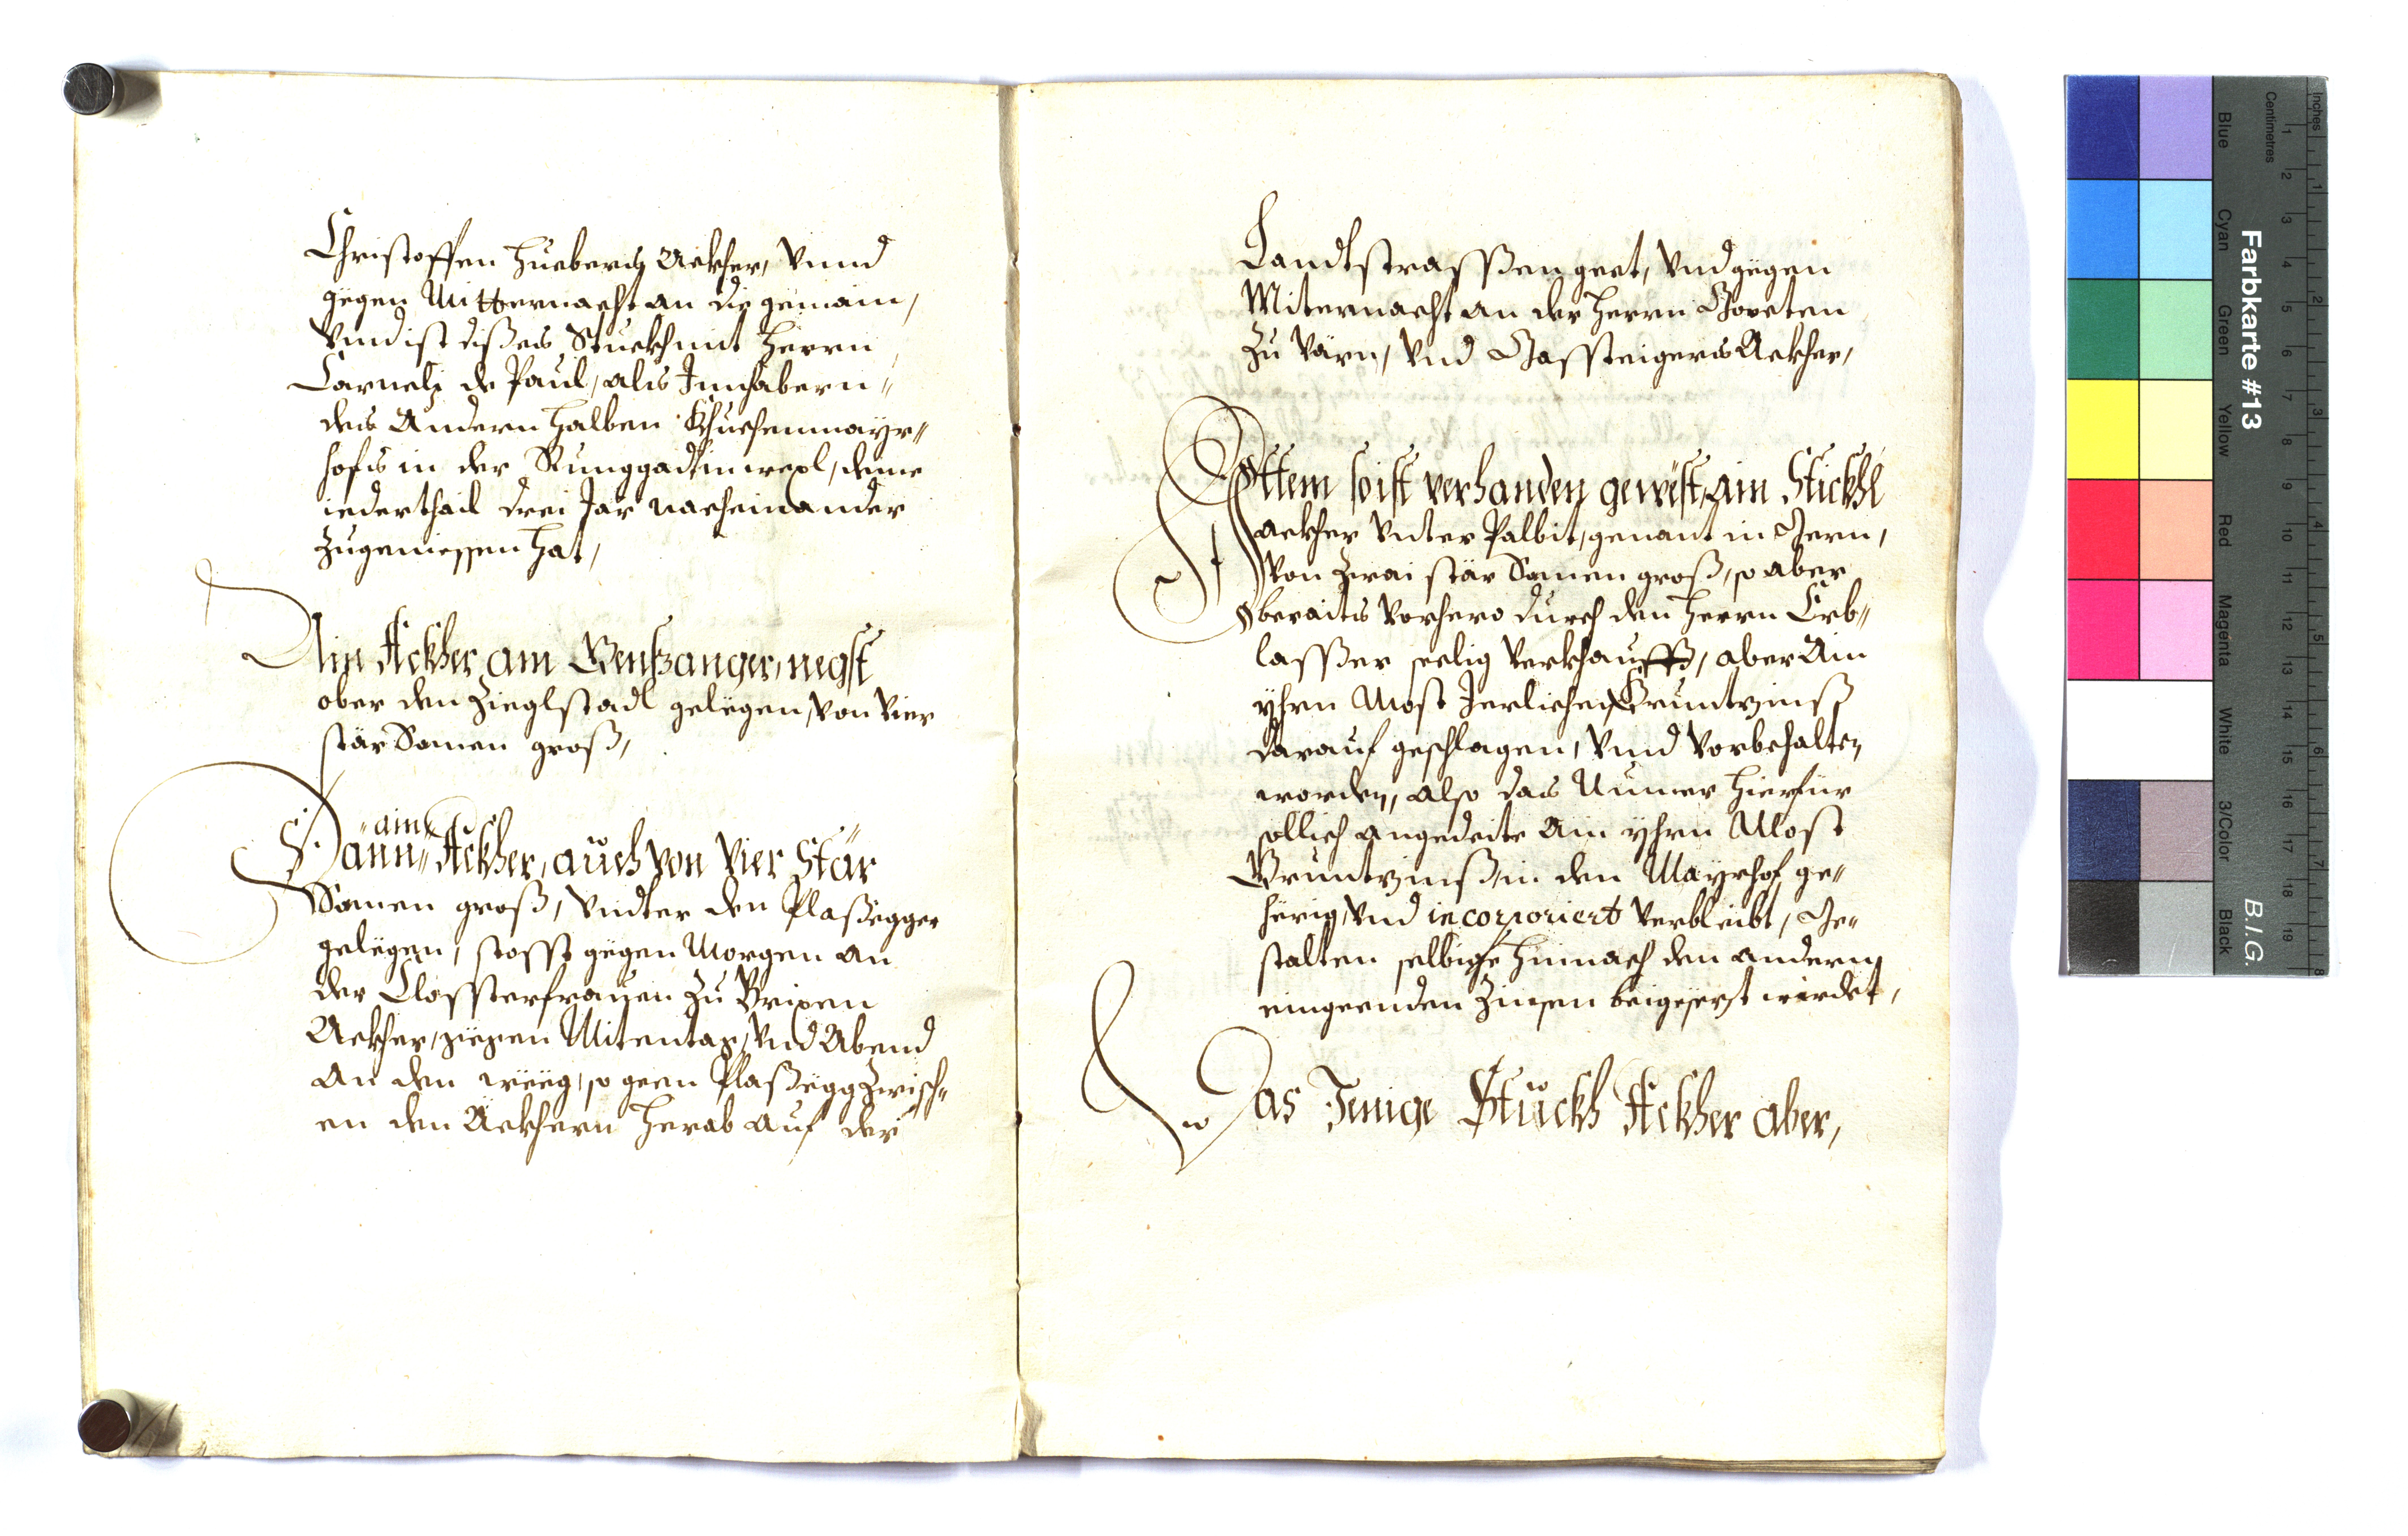 Christoffen Huebers Ackher, Vnnd
gëgen Mitternacht an die gemain,
Vnnd ist dißes Stuckh mit Herrn
Carneli de Paul, als Innhabern
des Andern halben Khuchenmayr„
hofs in der Runggad in wexl, deme
iederthail drei Jar nacheinander
Zugeniessen hat,
Ain Ackher am Gensanger, negst
ober den Zieglstadl gelëgen, von vier
stär Samen groß,
„ain
Dänn„ Ackher, auch von Vier Stär
Samen groß, Vndter den Plaßegger
gelëgen, stosst gëgen Morgen an
der Closterfrauen Zu Brixen
Ackher, gegen Mitentag, Vnd Abend
an den wëeg, so geen Plaßëgg Zwisch„
en den Äckhern herab auf der
Landtstrassßen geet, Vnd gëgen
Miternacht an der Herrn
Zu Värn, Vnd Gassteigers Ackher,
Ittem so ist verhanden gewëst, ain Stickhl
ackher Vnter Palbit, genant in Gern,
Von Zwai stär Samen groß, so aber
beraits Vorhero durch den Herrn Erb„
lassßer seelig Verkhaufft, aber Ain
yhrn Most Jerlichen Gruntzinß
darauf geschlagen, Vnnd Vorbehalten
worden, also das Nunner hierfür
sollich angedeite Ain yhrn Most
Gruntzinß in den Mayrhof ge„
hërig, Vnd incorporiert Verbleibt, Ge„
stalten selbige hinnach den andern
eingeenden Zinsen beigesezt wirdet,
Das Jenige Stuckh Ackher aber,
Farbkarte #13
B.I.G.
Inches
Centimetres
Blue
Cyan
Green
Yellow
Red
Magenta
White
3/Color
Black
1 2 3 4 5 6 7 8 9 10 11 12 13 14 15 16 17 18 19
1 2 3 4 5 6 7 8